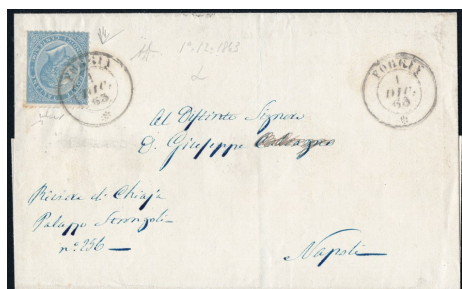 1º.12.1863
FOGGIA
1
DIC.
63
FOGGIA
1
DIC.
63
Al Distinto Signore
D. Giuseppe
Riviera di Chiaja
Palazzo Serongoli
nº. 256
Napoli